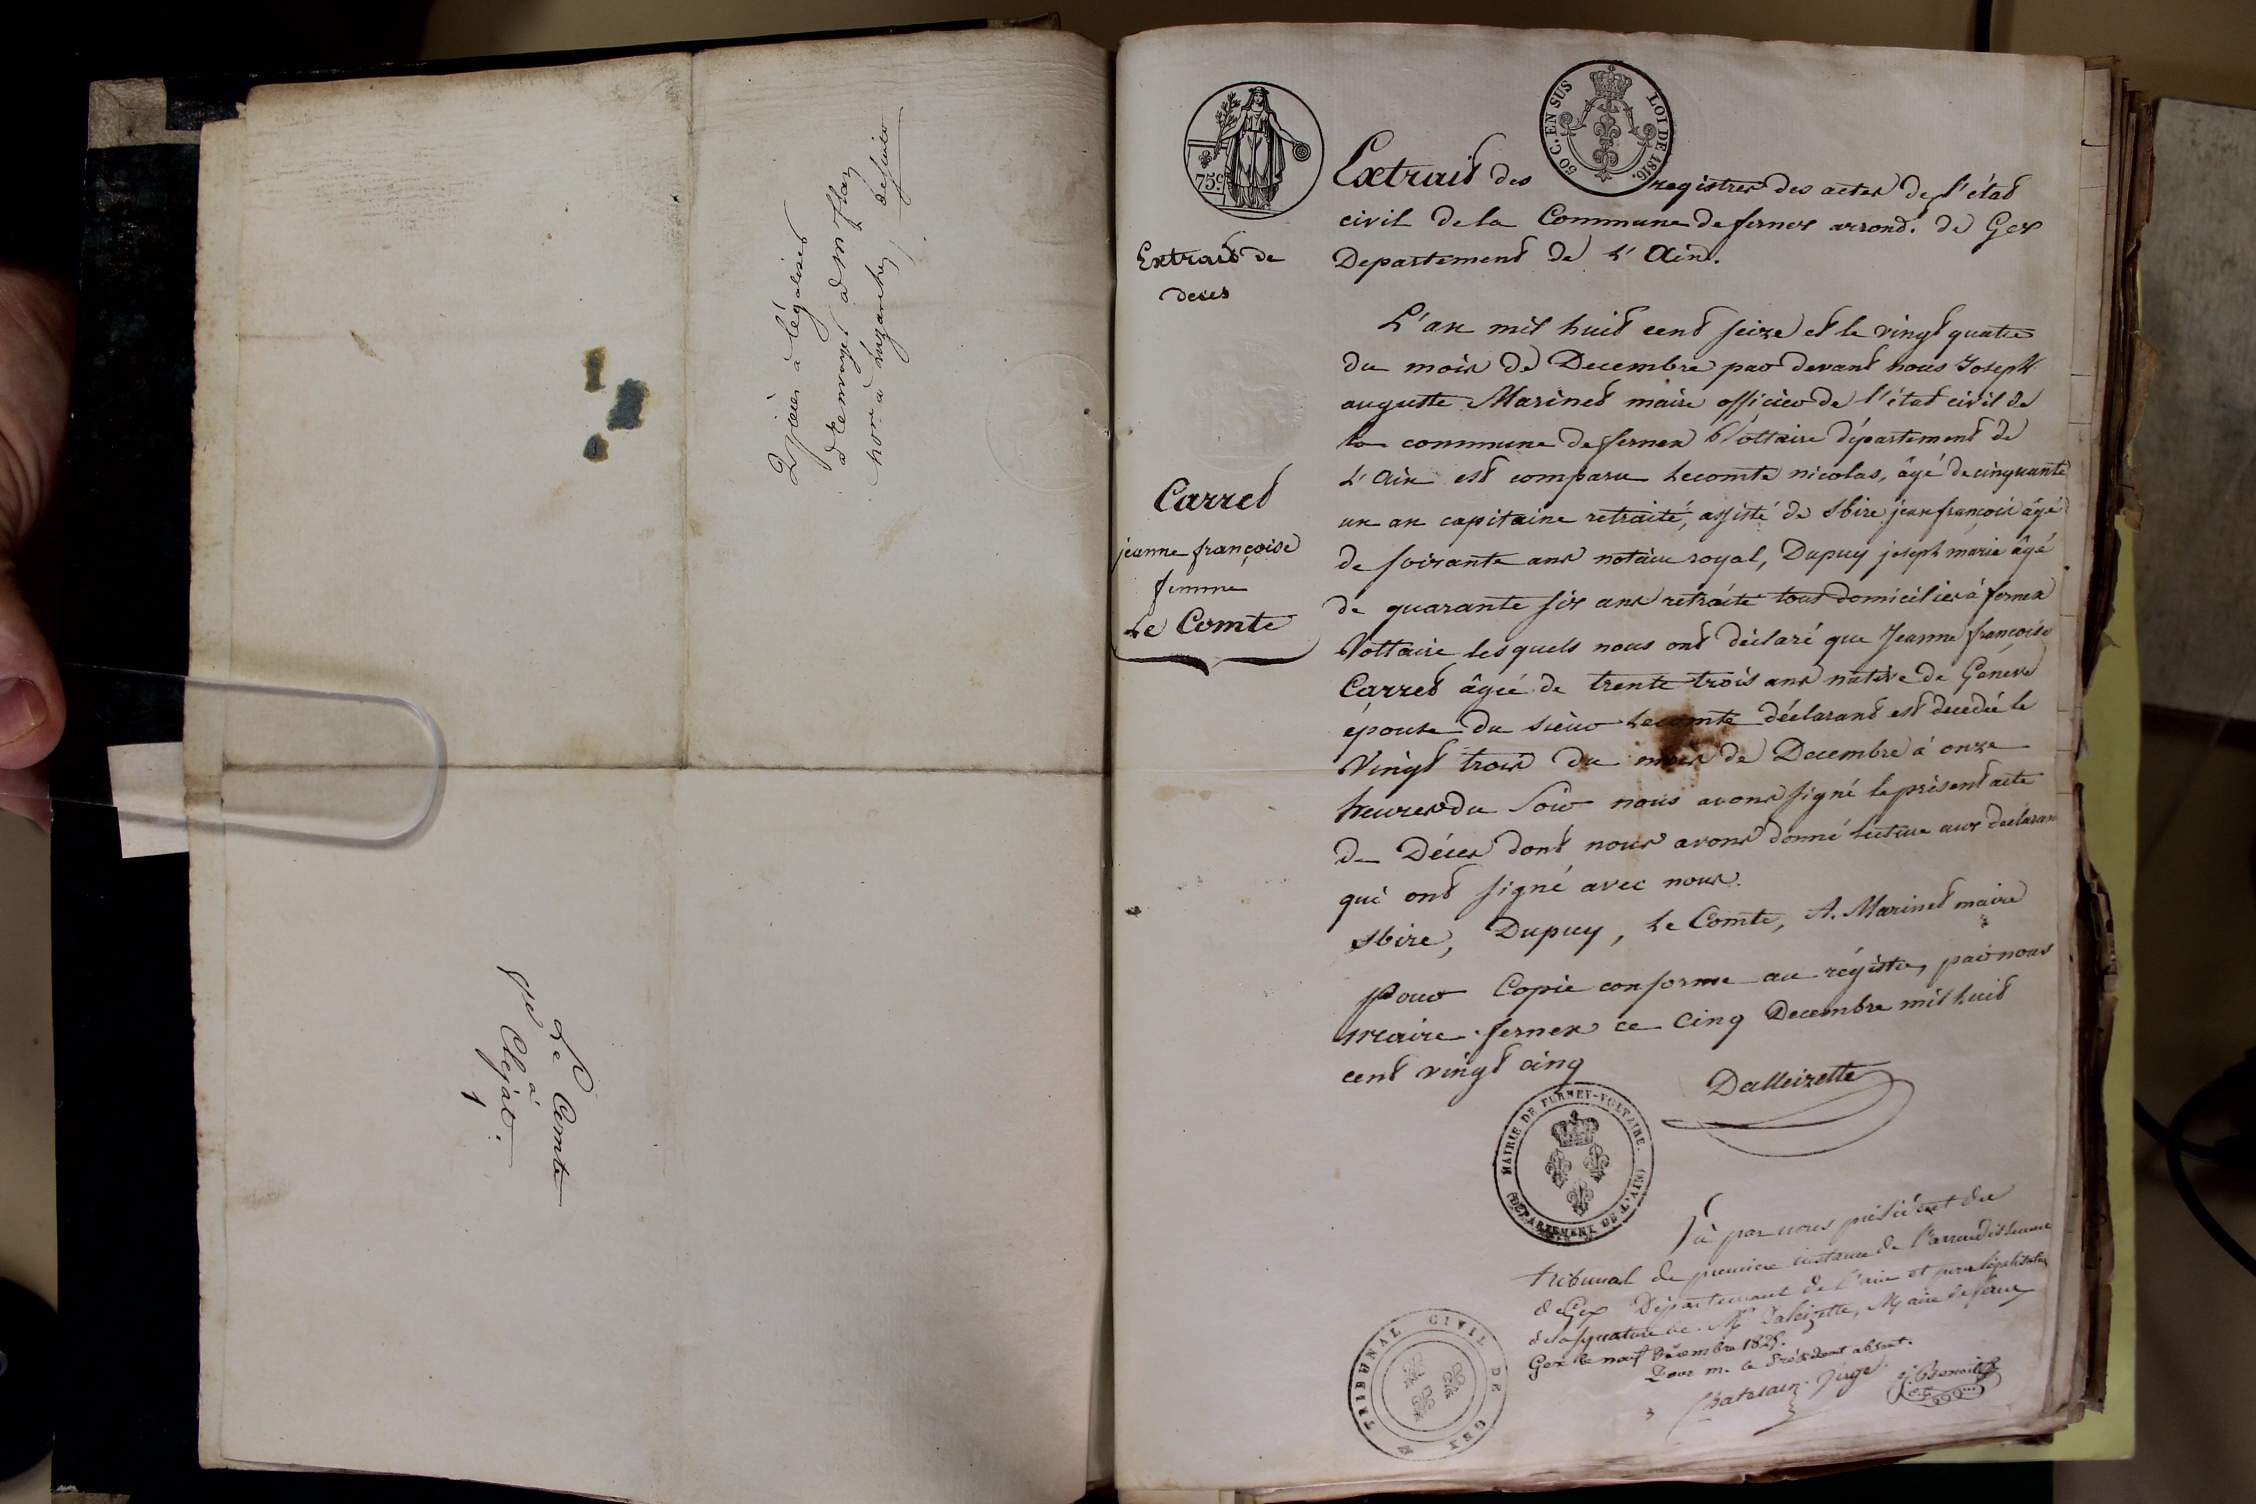 2 pièces à légaliser
a Renvoyer a Mr flaz
hor a
Le Comte
né
à
1
75c
50 C. EN SUS LOI DE 1816.
Extrait des registres des actes de l'état
civil de la Commune de fernex arrond. de Gex
Departement de L'Ain.
Extrait de
deces
L'an mil huit cent seize et le vingt quatre
du mois de Decembre par devant nous Joseph
auguste Marinet maire officier de l'état civil de
la commune de fernex Voltaire département de
L'Ain est comparu Lecomte nicolas, âgé de cinquante
un an capitaine retraité, assisté de sbire jean françois âgé
de soixante ans notaire royal, Dupuy joseph marie âgé
de quarante six ans retraité tous domiciliés à fernex
Voltaire lesquels nous ont déclaré que Jeanne françoise
Carret âgée de trente trois ans native de Geneve
épouse du sieur Lecomte déclarant est décédée le
Vingt trois du mois de Decembre à onze
heures du Soir nous avons signé le présent acte
de Déces dont nous avons donné lecture aux declarans
qui ont signé avec nous.
sbire, Dupuy, Le Comte, A. Marinet maire
Carret
jeanne françoise
femme
Le Comte
Pour Copie conforme au régistre, par nous
maire fernex ce Cinq Decembre mil huit
cent vingt cinq
Dalleizette
MAIRIE DE FERNEY-VOLTAIRE. (DÉPARTEMENT DE L'AIN)
Vu par nous président du
tribunal de premiere instance de l'arrondissement
de Gex Département de l'ain et pour légalisation
de la signature de Mr Daleizette, Maire de fernex
Gex le neuf Décembre 1825.
Pour m. le Président absent.
Chatelain. Juge.
TRIBUNAL CIVIL DE GEX